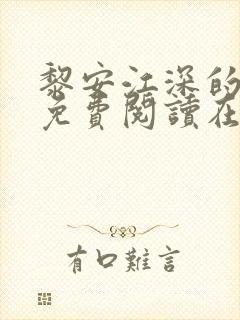 黎安江深的
免費閱讀在
有口難言